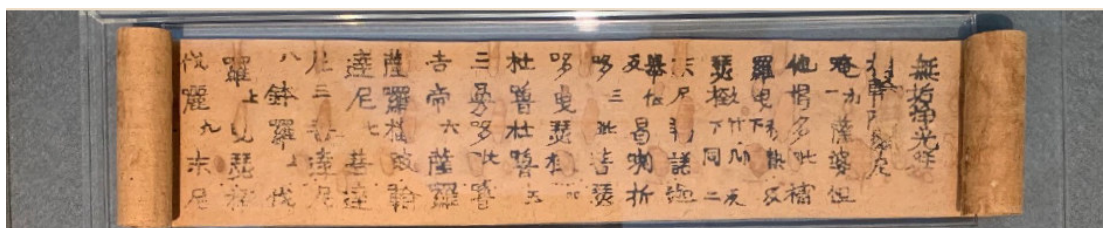 無垢淨光經
相輪陀羅尼
唵一薩婆怛
他揭多毗補
羅曳
瑟㨖下同二
末尼羯諾迦
反曷喇折
哆三毗菩瑟
哆曳瑟㨖四
杜嚕杜嚕五
三曼哆毗嚕
吉帝六薩羅
薩羅播跛輸
達尼七菩達
尼三菩達尼
八鉢羅上伐
羅上曳瑟㨖
伐麗九末尼